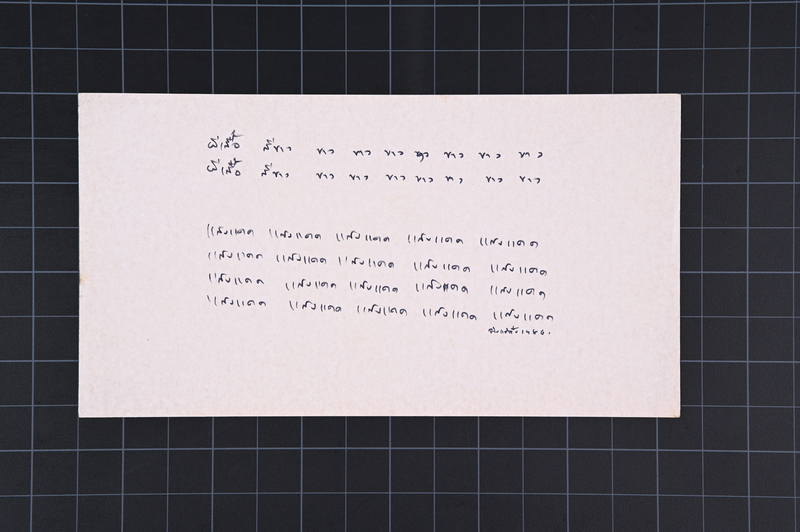 ผีเสื้อ สีขาว ขาว ขาว ขาว ขาว ขาว ขาว ขาว
ผีเสื้อ สีขาว ขาว ขาว ขาว ขาว ขาว ขาว ขาว
แสงแดด แสงแดด แสงแดด แสงแดด แสงแดด
แสงแดด แสงแดด แสงแดด แสงแดด แสงแดด
แสงแดด แสงแดด แสงแดด แสงแดด แสงแดด
แสงแดด แสงแดด แสงแดด แสงแดด แสงแดด